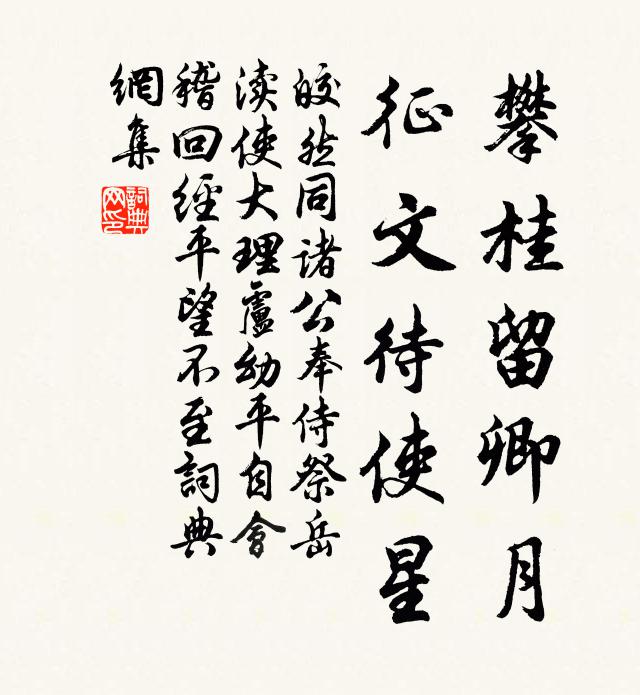 攀桂留卿月
征文待使星
皎然同諸公奉侍祭岳
渎使大理盧幼平自會
稽回經平望不至詞典
網集
詞典網印